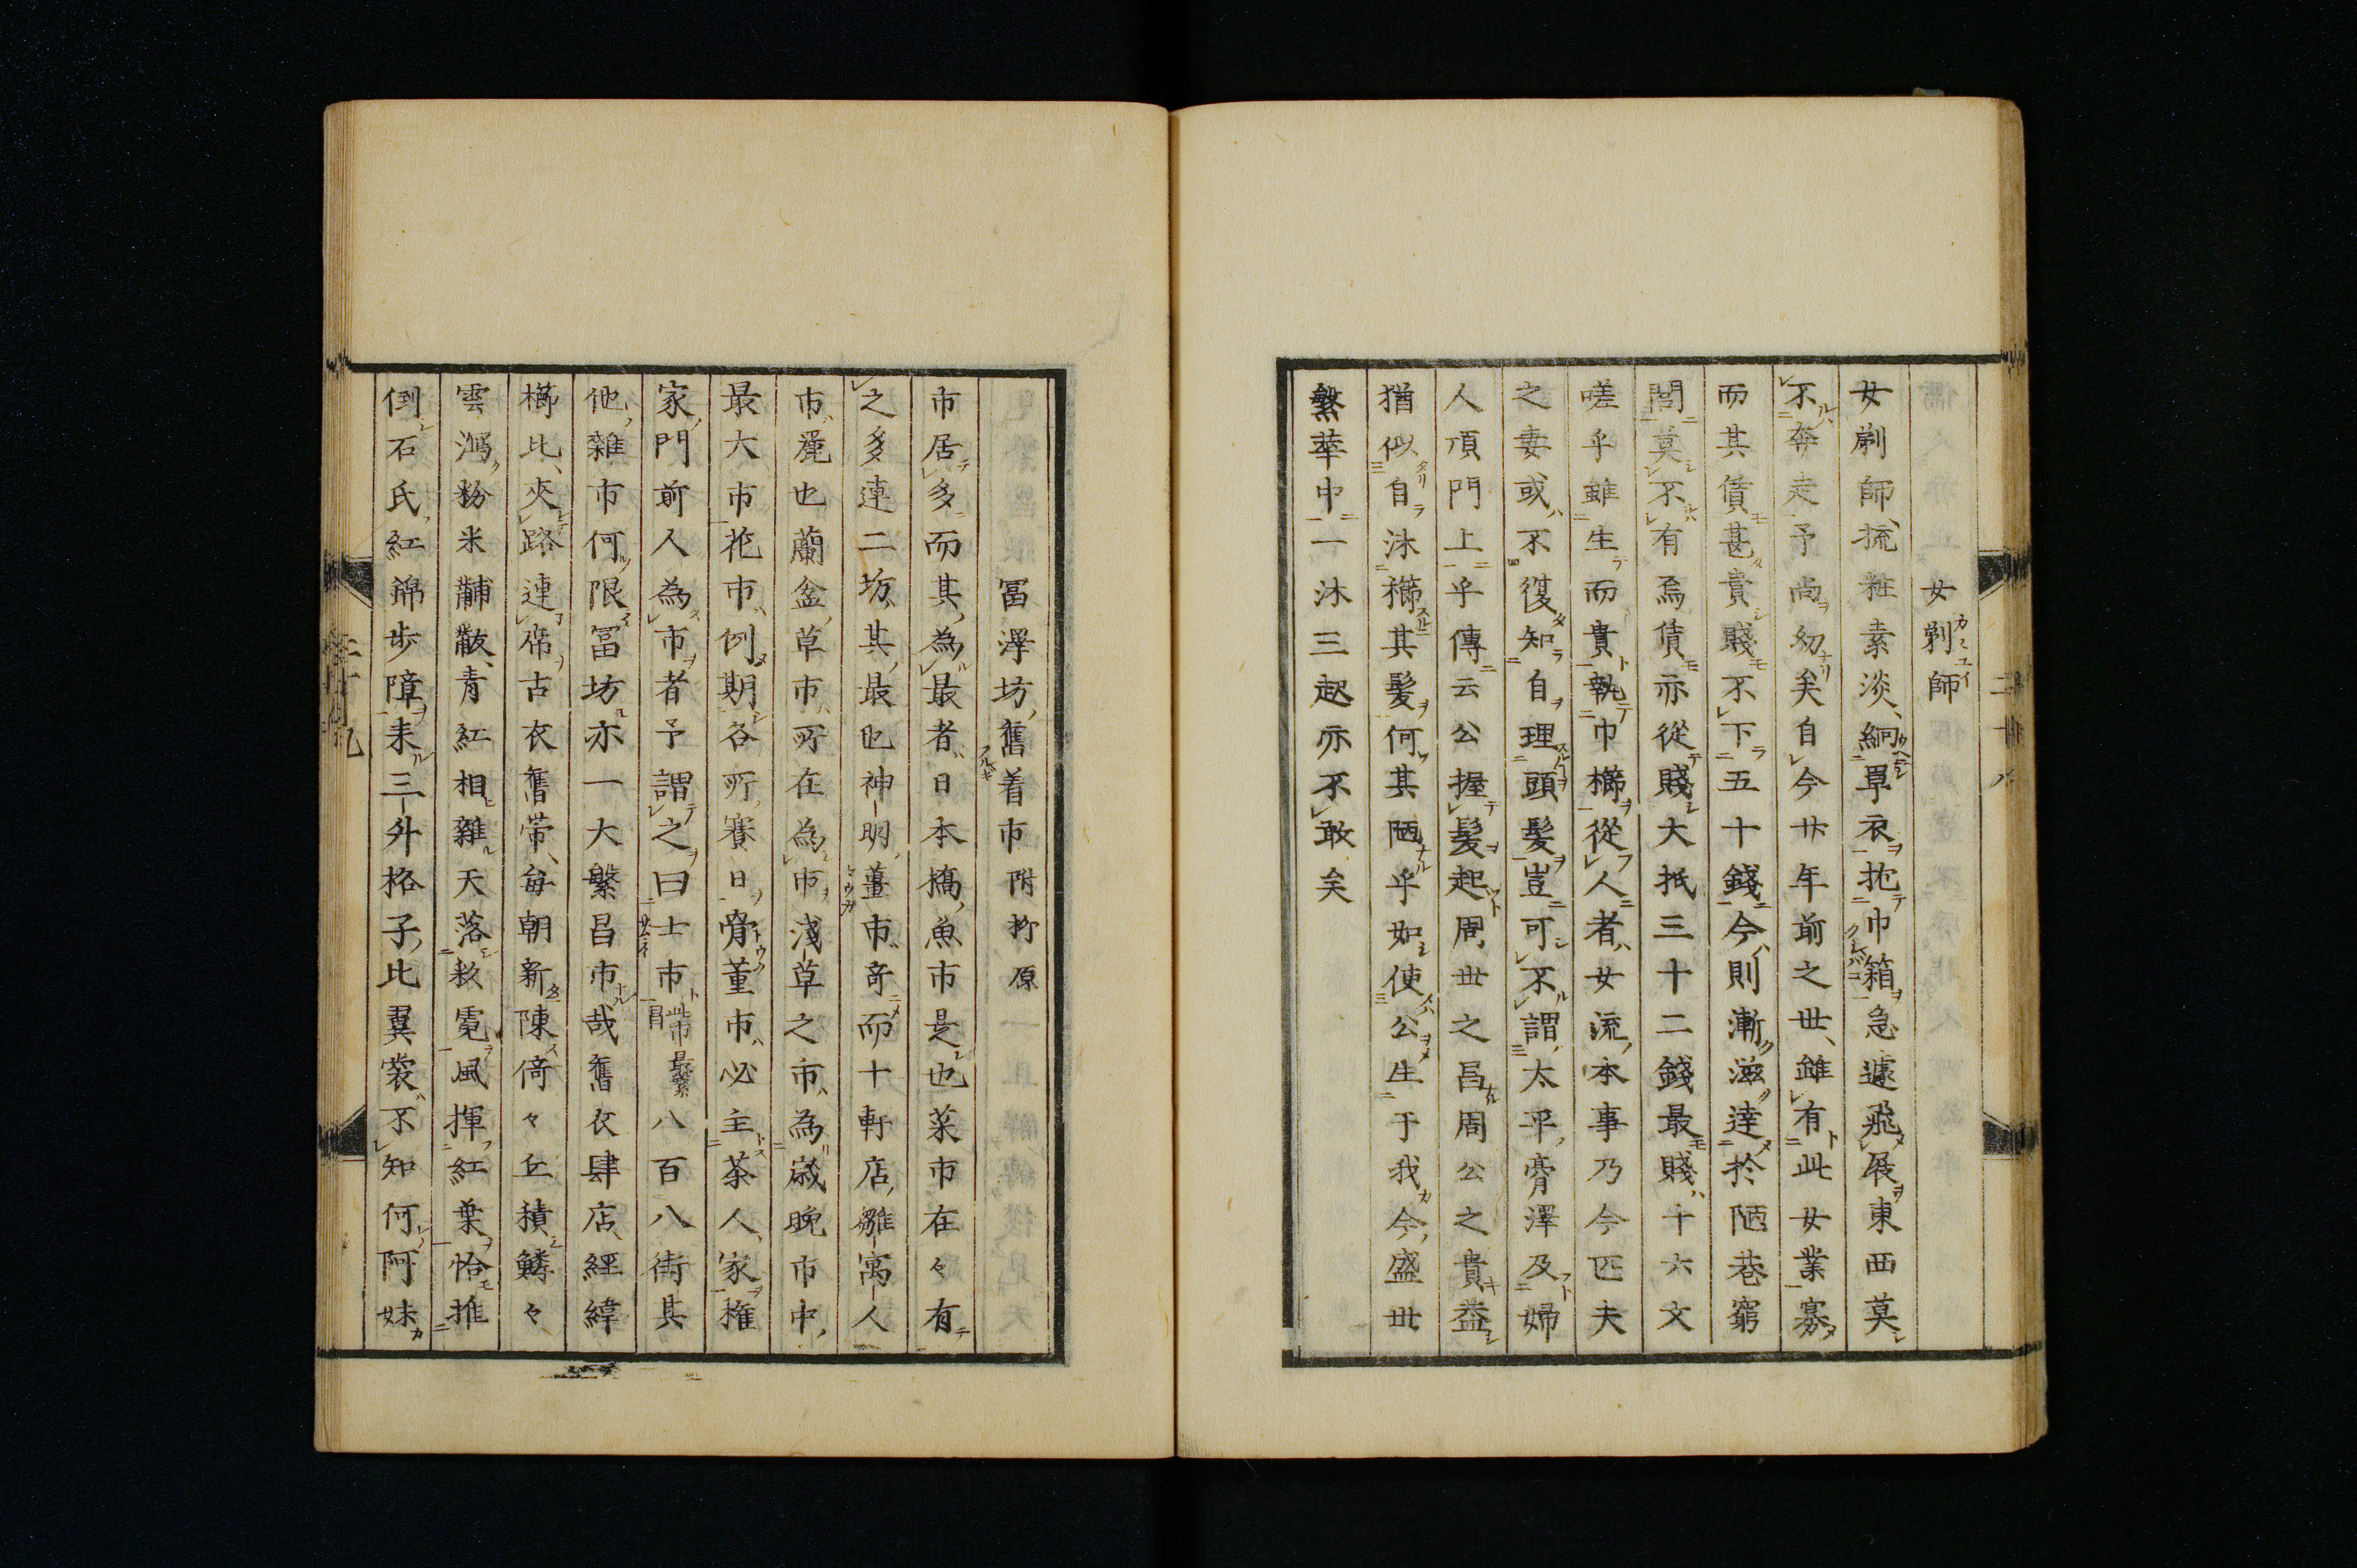 女剃師
女剃師、梳粧素淡、絅單衣抱巾箱急遽飛展東西莫
不奔走予尚幼矣自今廿年前之世、雖有此女業寡
而其賃甚貴賤不下五十錢今則漸滋達於陋巷窮
閭莫不有焉賃亦從賤大抵三十二錢最賤十六文
嗟乎雖生而貴執巾櫛從人者女流本事乃今匹夫
之妻或不復知自理頭髮豈可不謂太平膏澤及婦
人頂門上乎傳云公握髮起周世之昌周公之貴益
猶似自沐櫛其髮何其陋乎如使公生于我今盛世
繁華中一沐三起亦不敢矣
冨澤坊舊着市附柳原
市居多而其為最者日本橋魚市是也菜市在々有
之多連二坊其最也神明薑市奇而十軒店雛寓人
市麗也蘭盆草市所在為市淺草之市為歳晚市中
最大市花市例期各所賽日骨董市必主茶人家權
家門前人為市者予謂之曰士市八百八街其
他雜市何限冨坊亦一大繁昌市哉舊衣肆店經緯
櫛比、夾路連席古衣舊帶、毎朝新陳倚々丘積鱗々
雲瀉粉米黼黻、青紅相雜天落敉霓風揮紅葉恰推
倒石氏紅錦歩障来三外格子比翼裳不知何阿妹
二十八
二十九